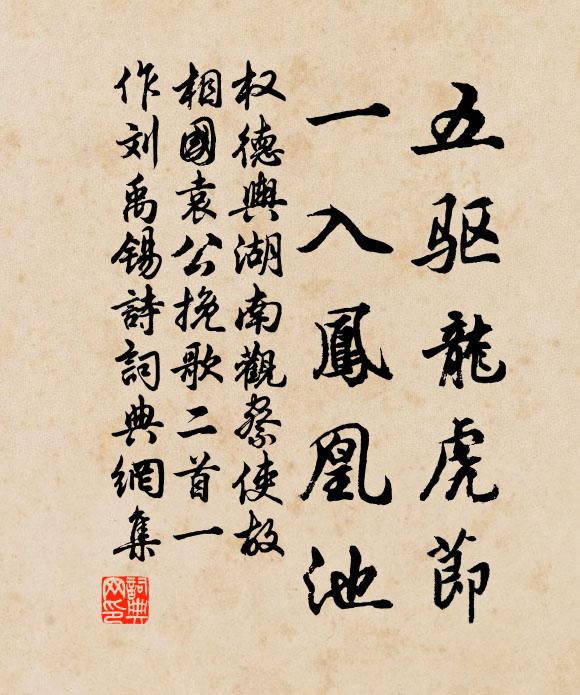 五驱龍虎節
一入鳳凰池
权德輿湖南觀察使故
相國袁公挽歌二首一
作刘禹锡詩詞典網集
詞典
网印